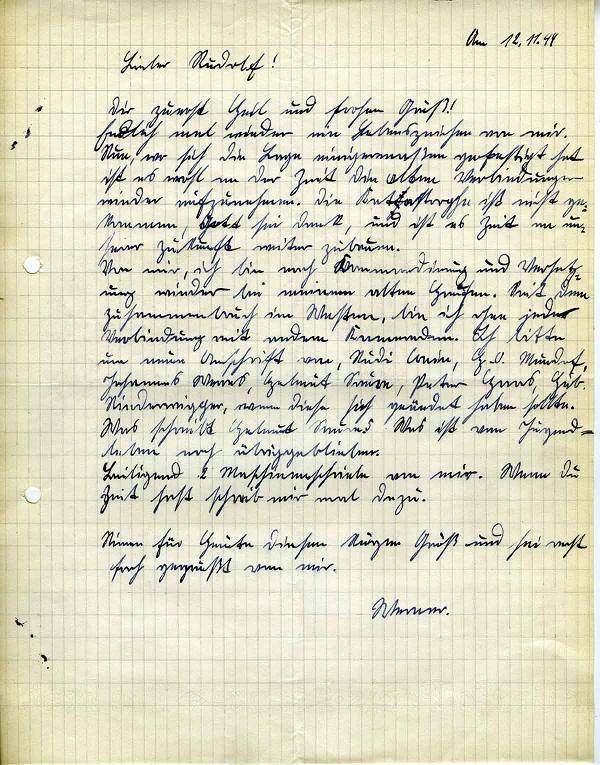 Am 12.11.44
Lieber Rudolf!
Dir zuerst Heil und frohen Gruß!
Endlich mal wieder ein Lebenszeichen von mir.
Nun, wo sich die Lage einigermaßen gefestigt hat
ist es wohl an der Zeit die alten Verbindungen
wieder aufzunehmen. Die Katastrophe ist nicht ge-
kommen, Gott sei dank, und ist es Zeit an un-
serer Zukunft weiter zubauen.
Von mir, ich bin nach Kommandierung und Versetz-
ung wieder bei meinem alten Haufen. Seit dem
Zusammenbruch im Westen, bin ich ohne jede
Verbindung mit andern Kameraden. Ich bitte
um neue Anschrift von, Rudi
Johannes, Helmut, Peter
wenn diese sich geändert haben sollte.
Was schreibt Helmut Was ist vom Jugend-
leben noch übriggeblieben.
Beiligend 2 von mir. Wenn du
Zeit hast schreib mir mal dazu.
Nimm für Heute diesen kurzen Gruß und sei recht
froh gegrüßt von mir.
Werner.